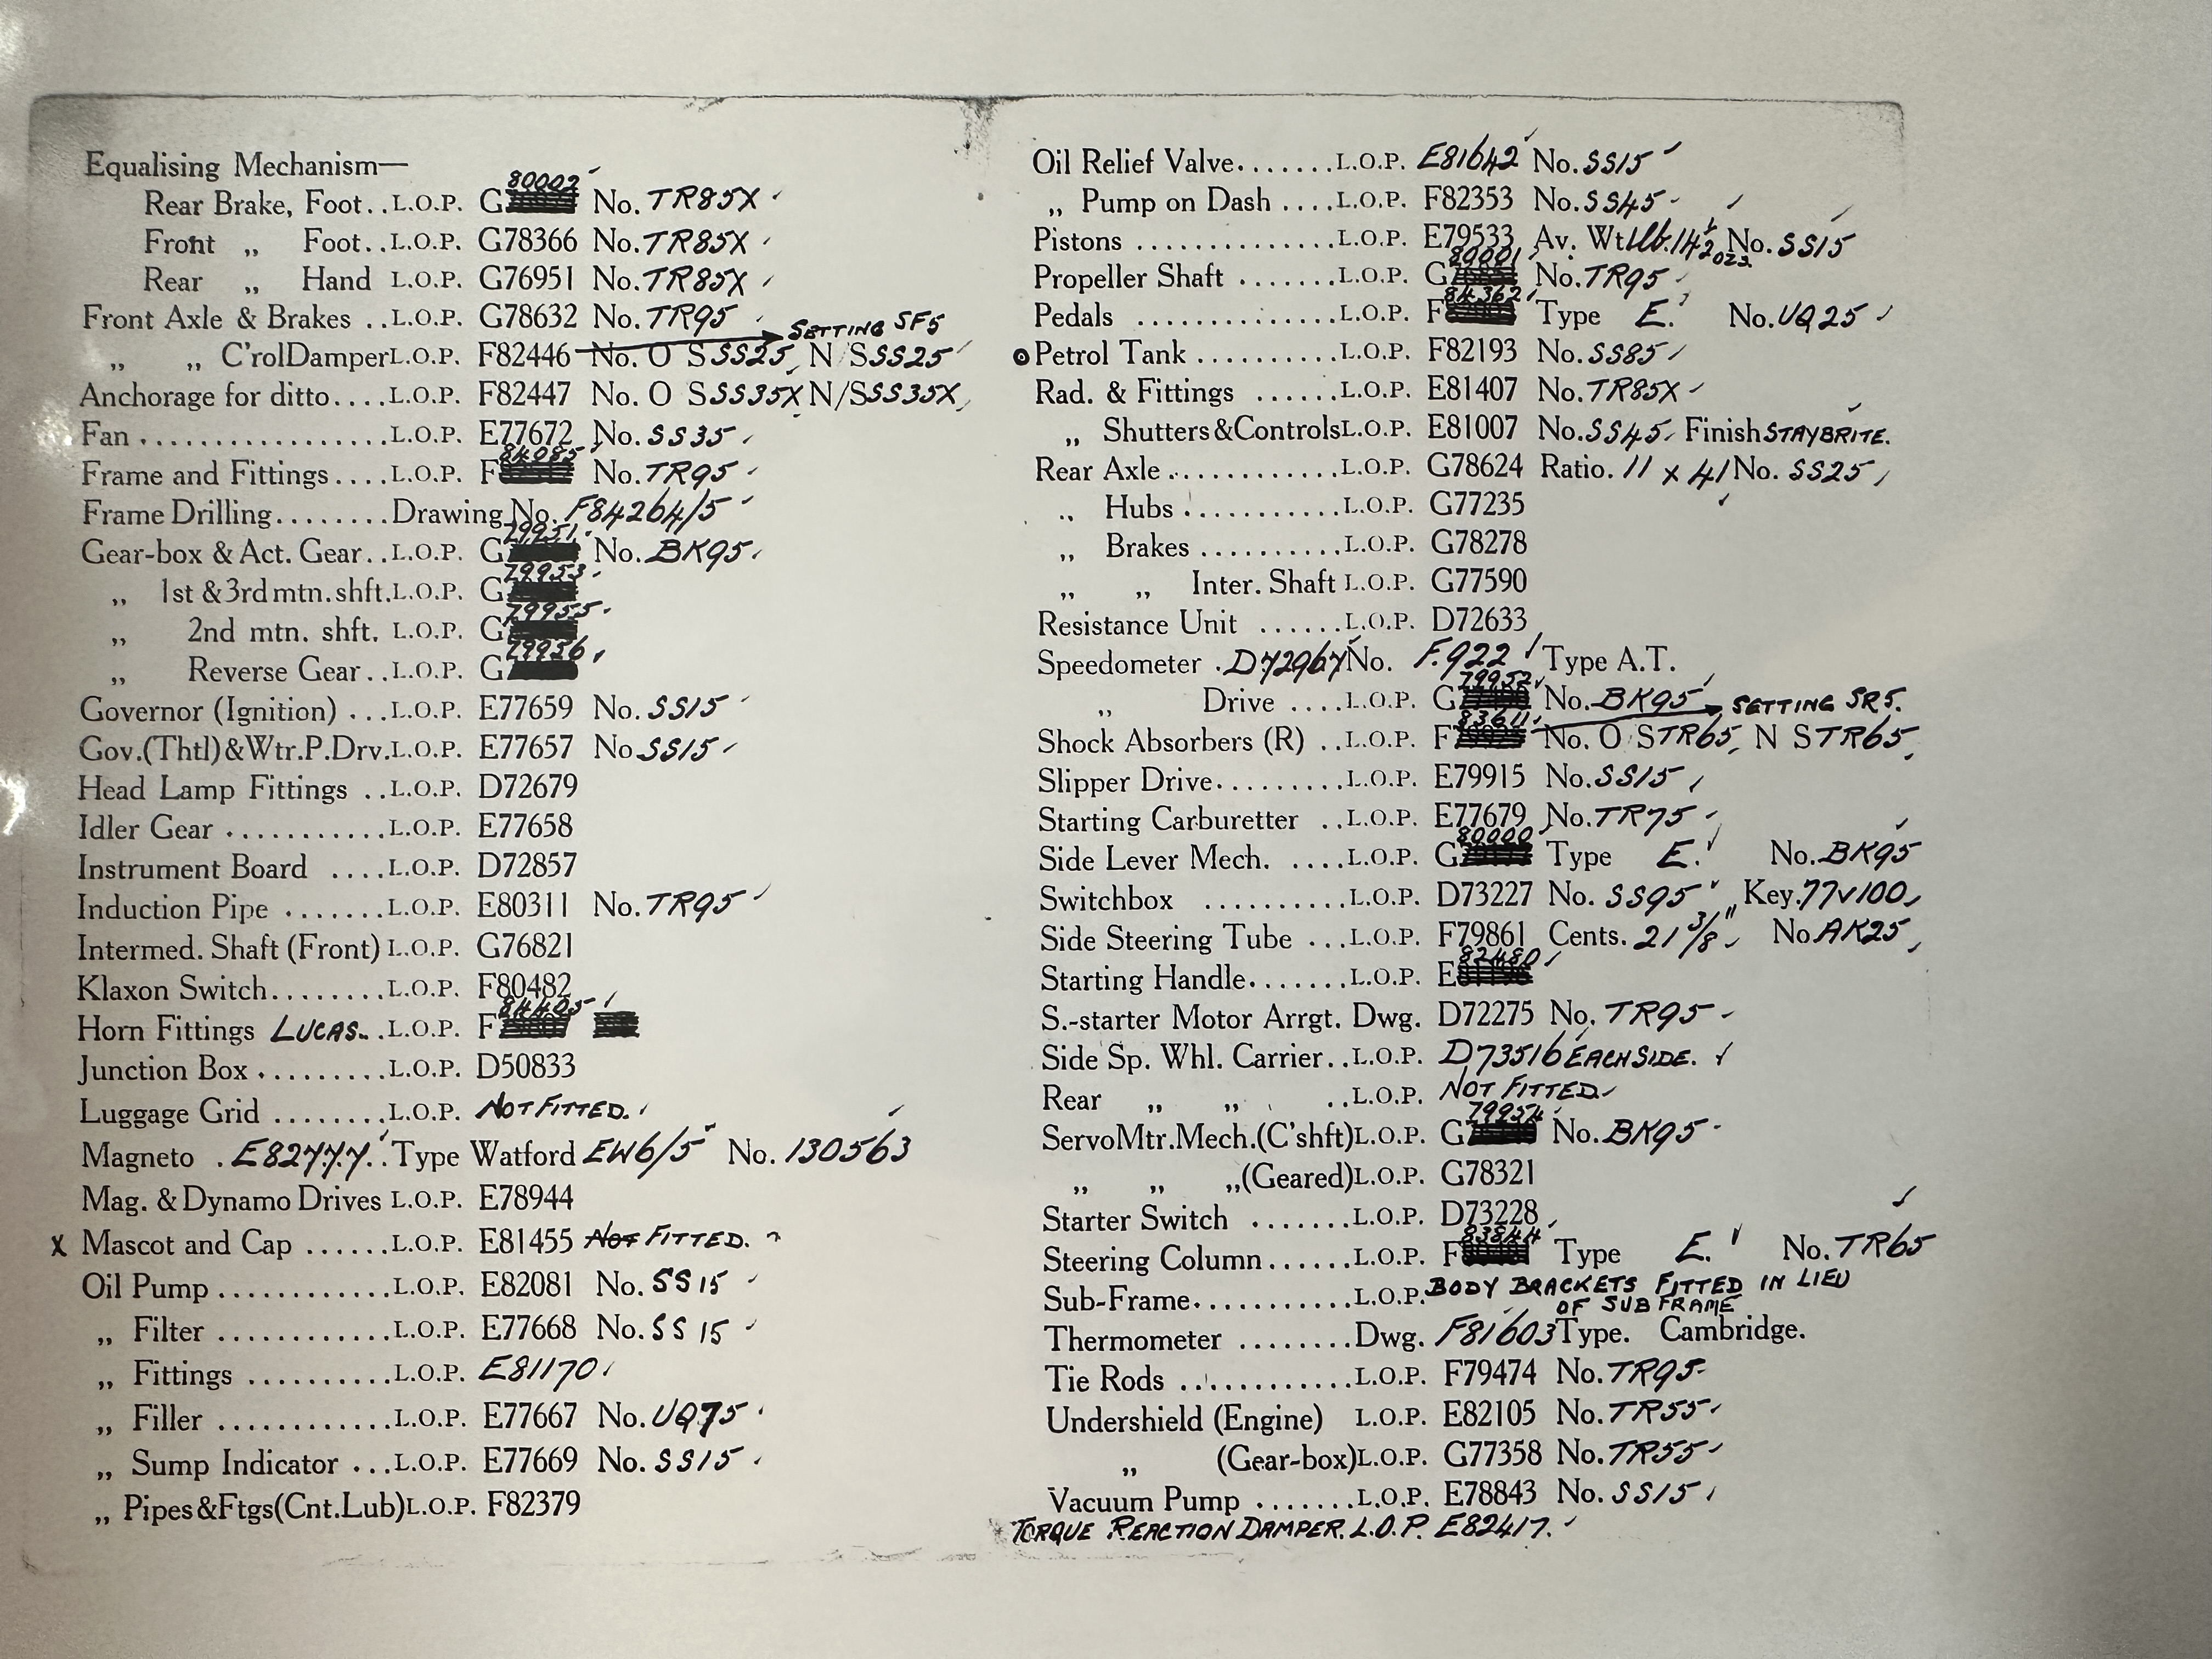 Equalising Mechanism—
Rear Brake, Foot..L.O.P. G80002 No. TR85X
Front „ Foot..L.O.P. G78366 No. TR85X
Rear „ Hand L.O.P. G76951 No. TR85X
Front Axle & Brakes ..L.O.P. G78632 No. TR95
„ „ C'rolDamperL.O.P. F82446 No. O SSS25, N/SSS25 SETTING SF5
Anchorage for ditto....L.O.P. F82447 No. O SSS35X N/SSS35X
Fan ..................L.O.P. E77672 No. SS35
Frame and Fittings ....L.O.P. F84085 No. TR95
Frame Drilling........Drawing No. F84264/5
Gear-box & Act. Gear..L.O.P. G79951 No. BK95
„ 1st & 3rd mtn. shft.L.O.P. G79953
„ 2nd mtn. shft. L.O.P. G79955
„ Reverse Gear..L.O.P. G79956
Governor (Ignition) ...L.O.P. E77659 No. SS15
Gov.(Thtl)&Wtr.P.Drv.L.O.P. E77657 No SS15
Head Lamp Fittings ..L.O.P. D72679
Idler Gear ............L.O.P. E77658
Instrument Board ....L.O.P. D72857
Induction Pipe .......L.O.P. E80311 No. TR95
Intermed. Shaft (Front) L.O.P. G76821
Klaxon Switch........L.O.P. F80482
Horn Fittings LUCAS...L.O.P. F84405
Junction Box .........L.O.P. D50833
Luggage Grid ........L.O.P. NOT FITTED.
Magneto . E82777..Type Watford EW6/5 No. 130563
Mag. & Dynamo Drives L.O.P. E78944
X Mascot and Cap ......L.O.P. E81455 NOT FITTED.
Oil Pump ............L.O.P. E82081 No. SS15
„ Filter ............L.O.P. E77668 No. SS 15
„ Fittings ..........L.O.P. E81170
„ Filler ............L.O.P. E77667 No. UQ75
„ Sump Indicator ...L.O.P. E77669 No. SS15
„ Pipes&Ftgs(Cnt.Lub)L.O.P. F82379
Oil Relief Valve.......L.O.P. E81642 No. SS15
„ Pump on Dash ....L.O.P. F82353 No. SS45
Pistons ..............L.O.P. E79533 Av. Wt 1lb. 14½ ozs. No. SS15
Propeller Shaft .......L.O.P. G80001 No. TR95
Pedals ..............L.O.P. F84362 Type E. No. UQ25
Petrol Tank ..........L.O.P. F82193 No. SS85
Rad. & Fittings ......L.O.P. E81407 No. TR85X
„ Shutters&ControlsL.O.P. E81007 No. SS45 Finish STAYBRITE.
Rear Axle ............L.O.P. G78624 Ratio. 11 x 41 No. SS25
„ Hubs ...........L.O.P. G77235
„ Brakes ..........L.O.P. G78278
„ „ Inter. Shaft L.O.P. G77590
Resistance Unit ......L.O.P. D72633
Speedometer . D72967 No. F.922 Type A.T.
„ Drive ....L.O.P. G79952 No. BK95
Shock Absorbers (R) ..L.O.P. F83611 No. O STR65, N STR65 SETTING SR5.
Slipper Drive.........L.O.P. E79915 No. SS15
Starting Carburetter ..L.O.P. E77679 No. TR75
Side Lever Mech. ....L.O.P. G80000 Type E. No. BK95
Switchbox ..........L.O.P. D73227 No. SS95 Key. 77V100
Side Steering Tube ...L.O.P. F79861 Cents. 21 3/8" No AK25
Starting Handle.......L.O.P. E82480
S.-starter Motor Arrgt. Dwg. D72275 No. TR95
Side Sp. Whl. Carrier..L.O.P. D73516 EACH SIDE.
Rear „ „ ..L.O.P. NOT FITTED
ServoMtr.Mech.(C'shft)L.O.P. G79954 No. BK95
„ „ „(Geared)L.O.P. G78321
Starter Switch .......L.O.P. D73228
Steering Column ......L.O.P. F83844 Type E. No. TR65
Sub-Frame...........L.O.P. BODY BRACKETS FITTED IN LIEU
OF SUB FRAME
Thermometer ........Dwg. F81603 Type. Cambridge.
Tie Rods ............L.O.P. F79474 No. TR95
Undershield (Engine) L.O.P. E82105 No. TR55
„ (Gear-box)L.O.P. G77358 No. TR55
Vacuum Pump .......L.O.P. E78843 No. SS15
TORQUE REACTION DAMPER. L.O.P. E82417.